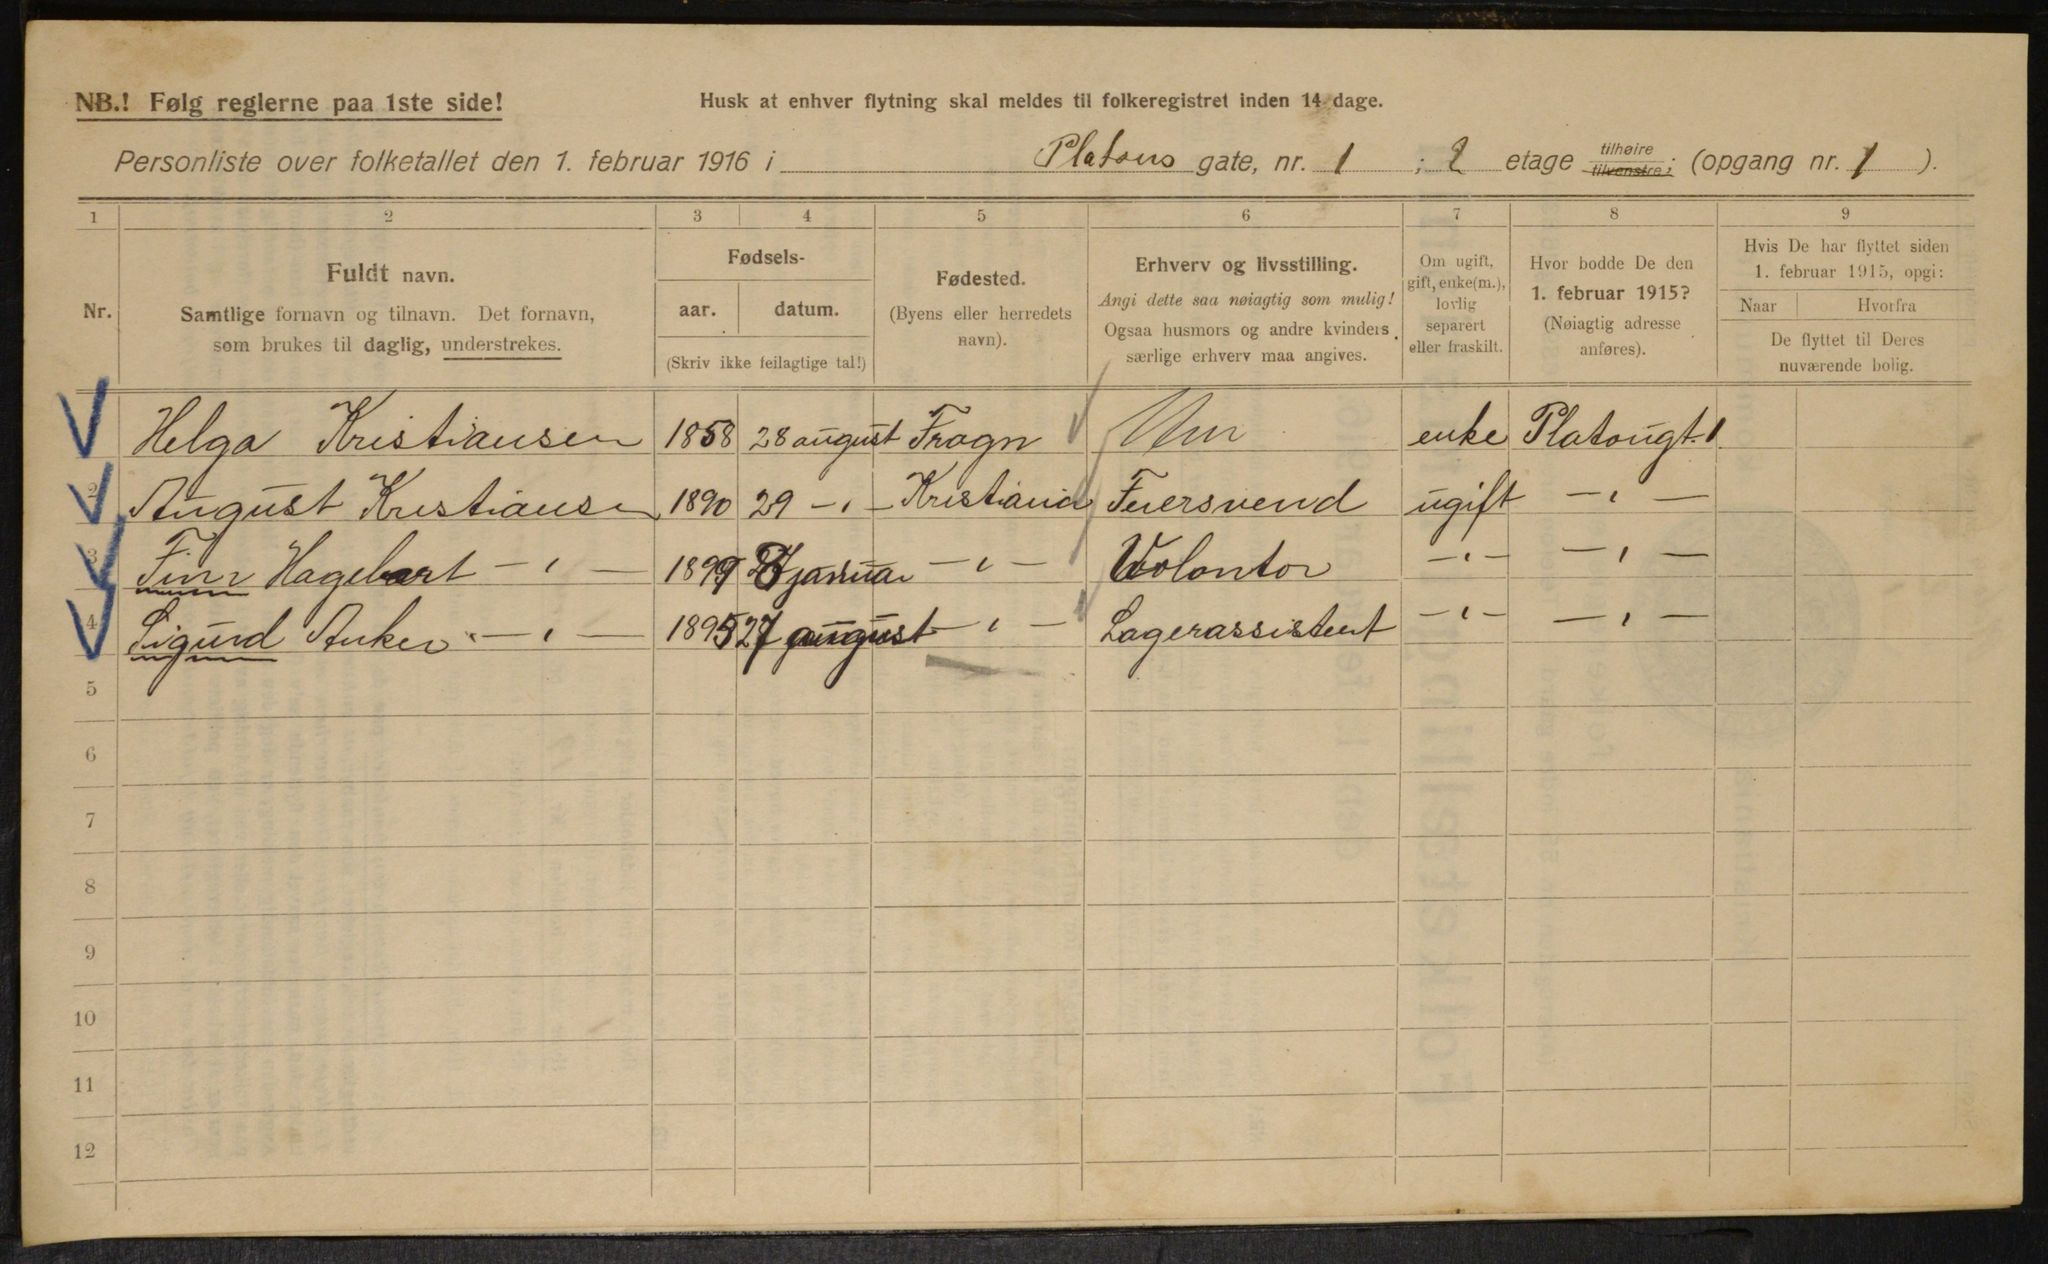 NB.! Følg reglerne paa 1ste side!
Husk at enhver flytning skal meldes til folkeregistret inden 14 dage.
Personliste over folketallet den 1. februar 1916 i Platous gate, nr. 1 ; 2 etage tilhøire tilvenstre; (opgang nr. 1 ).
1 2 3 4 5 6 7 8 9
Nr.
Fuldt navn.
Samtlige fornavn og tilnavn. Det fornavn,
som brukes til daglig, understrekes.
Fødsels-
aar. datum.
(Skriv ikke feilagtige tal!)
Fødested.
(Byens eller herredets
navn).
Erhverv og livsstilling.
Angi dette saa nøiagtig som mulig!
Ogsaa husmors og andre kvinders
særlige erhverv maa angives.
Om ugift,
gift, enke(m.),
lovlig
separert
eller fraskilt.
Hvor bodde De den
1. februar 1915?
(Nøiagtig adresse
anføres).
Hvis De har flyttet siden
1. februar 1915, opgi:
Naar Hvorfra
De flyttet til Deres
nuværende bolig.
Helga Kristiansen 1858 28 august Frogn enke Platougt. 1
2 August Kristiansen 1890 29 -"- Kristiania Feiersvend ugift -"-
3 Finn Hagebart -"- 1899 januar -"- Volontør -"- -"-
4 Sigurd Anker -"- 1895 27 august -"- Lagerassistent -"- -"-
5
6
7
8
9
10
11
12